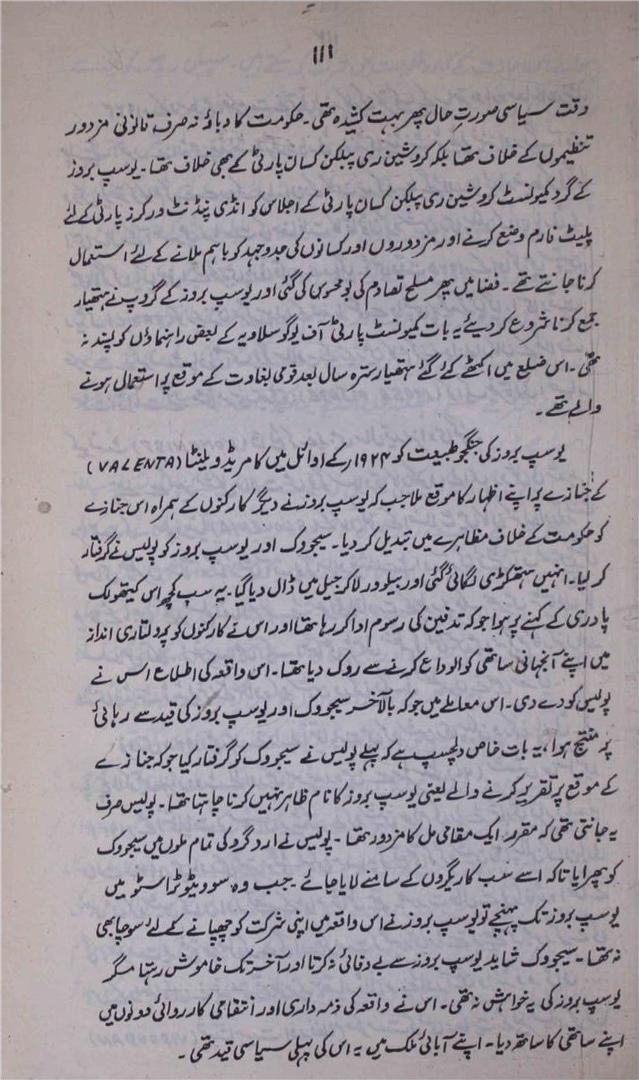 ۱۱۱
وقت سیاسی صورتِ حال پھر بہت کشیدہ تھی۔ حکومت کا دباؤ نہ صرف قانونی مزدور
تنظیموں کے خلاف تھا بلکہ کروشین ری پبلکن کسان پارٹی کے بھی خلاف تھا۔ یوسپ بروز
کے گرد کمیونسٹ کروشین ری پبلکن کسان پارٹی کے اجلاس کو انڈی پنڈنٹ ورکرز پارٹی کے لئے
پلیٹ فارم وضع کرنے اور مزدوروں اور کسانوں کی جدوجہد کو باہم ملانے کے لئے استعمال
کرنا جانتے تھے۔ فضا میں پھر مسلح تصادم کی بو محسوس کی گئی اور یوسپ بروز کے گروپ نے ہتھیار
جمع کرنا شروع کر دیئے یہ بات کمیونسٹ پارٹی آف یوگوسلاویہ کے بعض راہنماؤں کو پسند نہ
تھی۔ اس ضلع میں اکٹھے کئے گئے ہتھیار سترہ سال بعد قومی بغاوت کے موقع پر استعمال ہونے
والے تھے۔
یوسپ بروز کی جنگجو طبیعت کو ۱۹۲۴ء کے اوائل میں کامریڈ ویلنٹا (VALENTA)
کے جنازے پر اپنے اظہار کا موقع ملا جب کہ یوسپ بروز نے دیگر کارکنوں کے ہمراہ اس جنازے
کو حکومت کے خلاف مظاہرے میں تبدیل کر دیا۔ سیجوک اور یوسپ بروز کو پولیس نے گرفتار
کر لیا۔ انہیں ہتھکڑی لگائی گئی اور بیلوور لا کر جیل میں ڈال دیا گیا۔ یہ سب کچھ اس کیتھولک
پادری کے کہنے پر ہوا جو کہ تدفین کی رسوم ادا کر رہا تھا اور اس نے کارکنوں کو پرولتاری انداز
میں اپنے آنجہانی ساتھی کو الوداع کرنے سے روک دیا تھا۔ اس واقعہ کی اطلاع اس نے
پولیس کو دے دی۔ اس معاملے میں جو کہ بالآخر سیجوک اور یوسپ بروز کی قید سے رہائی
پر منتج ہوا، یہ بات خاص دلچسپ ہے کہ پہلے پولیس نے سیجوک کو گرفتار کیا جو کہ جنازے
کے موقع پر تقریر کرنے والے یعنی یوسپ بروز کا نام ظاہر نہیں کرنا چاہتا تھا۔ پولیس صرف
یہ جانتی تھی کہ مقرر ایک مقامی مل کا مزدور تھا۔ پولیس نے ارد گرد کی تمام ملوں میں سیجوک
کو پھرایا تاکہ اسے سب کاریگروں کے سامنے لایا جائے۔ جب وہ سوویٹو ٹراسٹو میں
یوسپ بروز تک پہنچے تو یوسپ بروز نے اس واقعہ میں اپنی شرکت کو چھپانے کے لئے سوچا بھی
نہ تھا۔ سیجوک شاید یوسپ بروز سے بے وفائی نہ کرتا اور آخر تک خاموش رہتا مگر
یوسپ بروز کی یہ خواہش نہ تھی۔ اس نے واقعہ کی ذمہ داری اور انتقامی کارروائی دونوں میں
اپنے ساتھی کا ساتھ دیا۔ اپنے آبائی ملک میں یہ اس کی پہلی سیاسی قید تھی۔